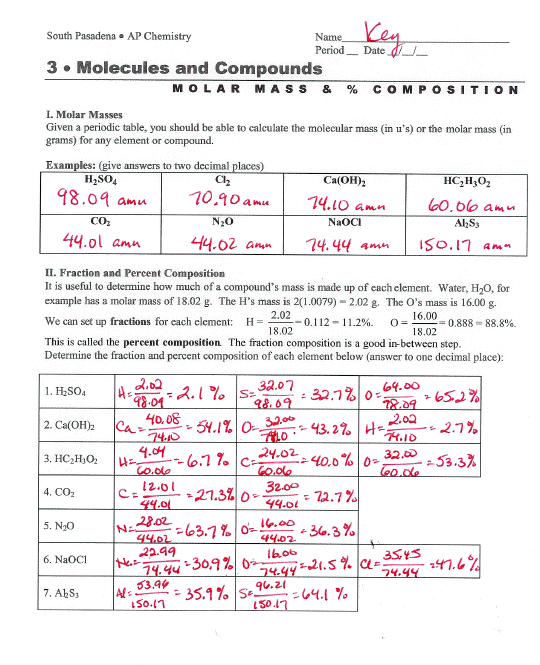 South Pasadena • AP Chemistry
Name Key
Period __ Date _/_/_
3 • Molecules and Compounds
MOLAR MASS & % COMPOSITION
I. Molar Masses
Given a periodic table, you should be able to calculate the molecular mass (in u's) or the molar mass (in
grams) for any element or compound.
Examples: (give answers to two decimal places)
H₂SO₄ Cl₂ Ca(OH)₂ HC₂H₃O₂
98.09 amu 70.90 amu 74.10 amu 60.06 amu
CO₂ N₂O NaOCl Al₂S₃
44.01 amu 44.02 amu 74.44 amu 150.17 amu
II. Fraction and Percent Composition
It is useful to determine how much of a compound's mass is made up of each element. Water, H₂O, for
example has a molar mass of 18.02 g. The H's mass is 2(1.0079) = 2.02 g. The O's mass is 16.00 g.
We can set up fractions for each element: H = 2.02/18.02 = 0.112 = 11.2%. O = 16.00/18.02 = 0.888 = 88.8%.
This is called the percent composition. The fraction composition is a good in-between step.
Determine the fraction and percent composition of each element below (answer to one decimal place):
1. H₂SO₄ H = 2.02/98.09 = 2.1% S = 32.07/98.09 = 32.7% O = 64.00/98.09 = 65.2%
2. Ca(OH)₂ Ca = 40.08/74.10 = 54.1% O = 32.00/74.10 = 43.2% H = 2.02/74.10 = 2.7%
3. HC₂H₃O₂ H = 4.04/60.06 = 6.7% C = 24.02/60.06 = 40.0% O = 32.00/60.06 = 53.3%
4. CO₂ C = 12.01/44.01 = 27.3% O = 32.00/44.01 = 72.7%
5. N₂O N = 28.02/44.02 = 63.7% O = 16.00/44.02 = 36.3%
6. NaOCl Na = 22.99/74.44 = 30.9% O = 16.00/74.44 = 21.5% Cl = 35.45/74.44 = 47.6%
7. Al₂S₃ Al = 53.96/150.17 = 35.9% S = 96.21/150.17 = 64.1%